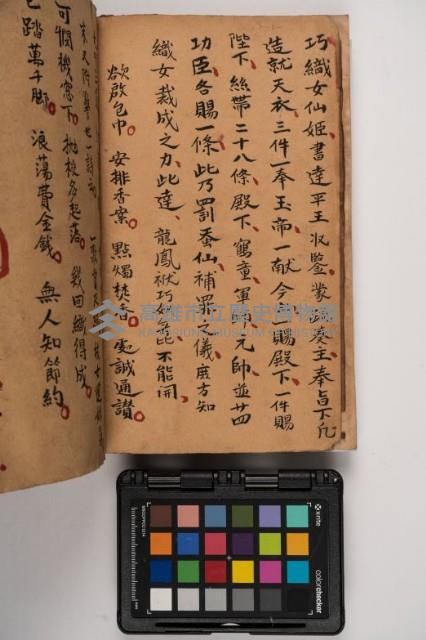 巧織女仙姬書達平王㳀鑒蒙瑤發主奉旨下凡
造就天衣三件一奉玉帝一献令公一賜殿下一件賜
陛下絲帶二十八條殿下鶴童軍師元帥並廿四
功臣各賜一條此乃罰蚕仙補罪儀度方知
織女裁成之力此達龍鳳袱巧包不能開
欲啟包巾安排香案點燭焚香虔誠通讃
可憫機窓下抛梭多起落幾回織得成
已踏萬千脚浪蕩費金錢無人知節約
高雄市立歷史博物館
KAOHSIUNG MUSEUM OF HISTORY
x-rite
colorchecker